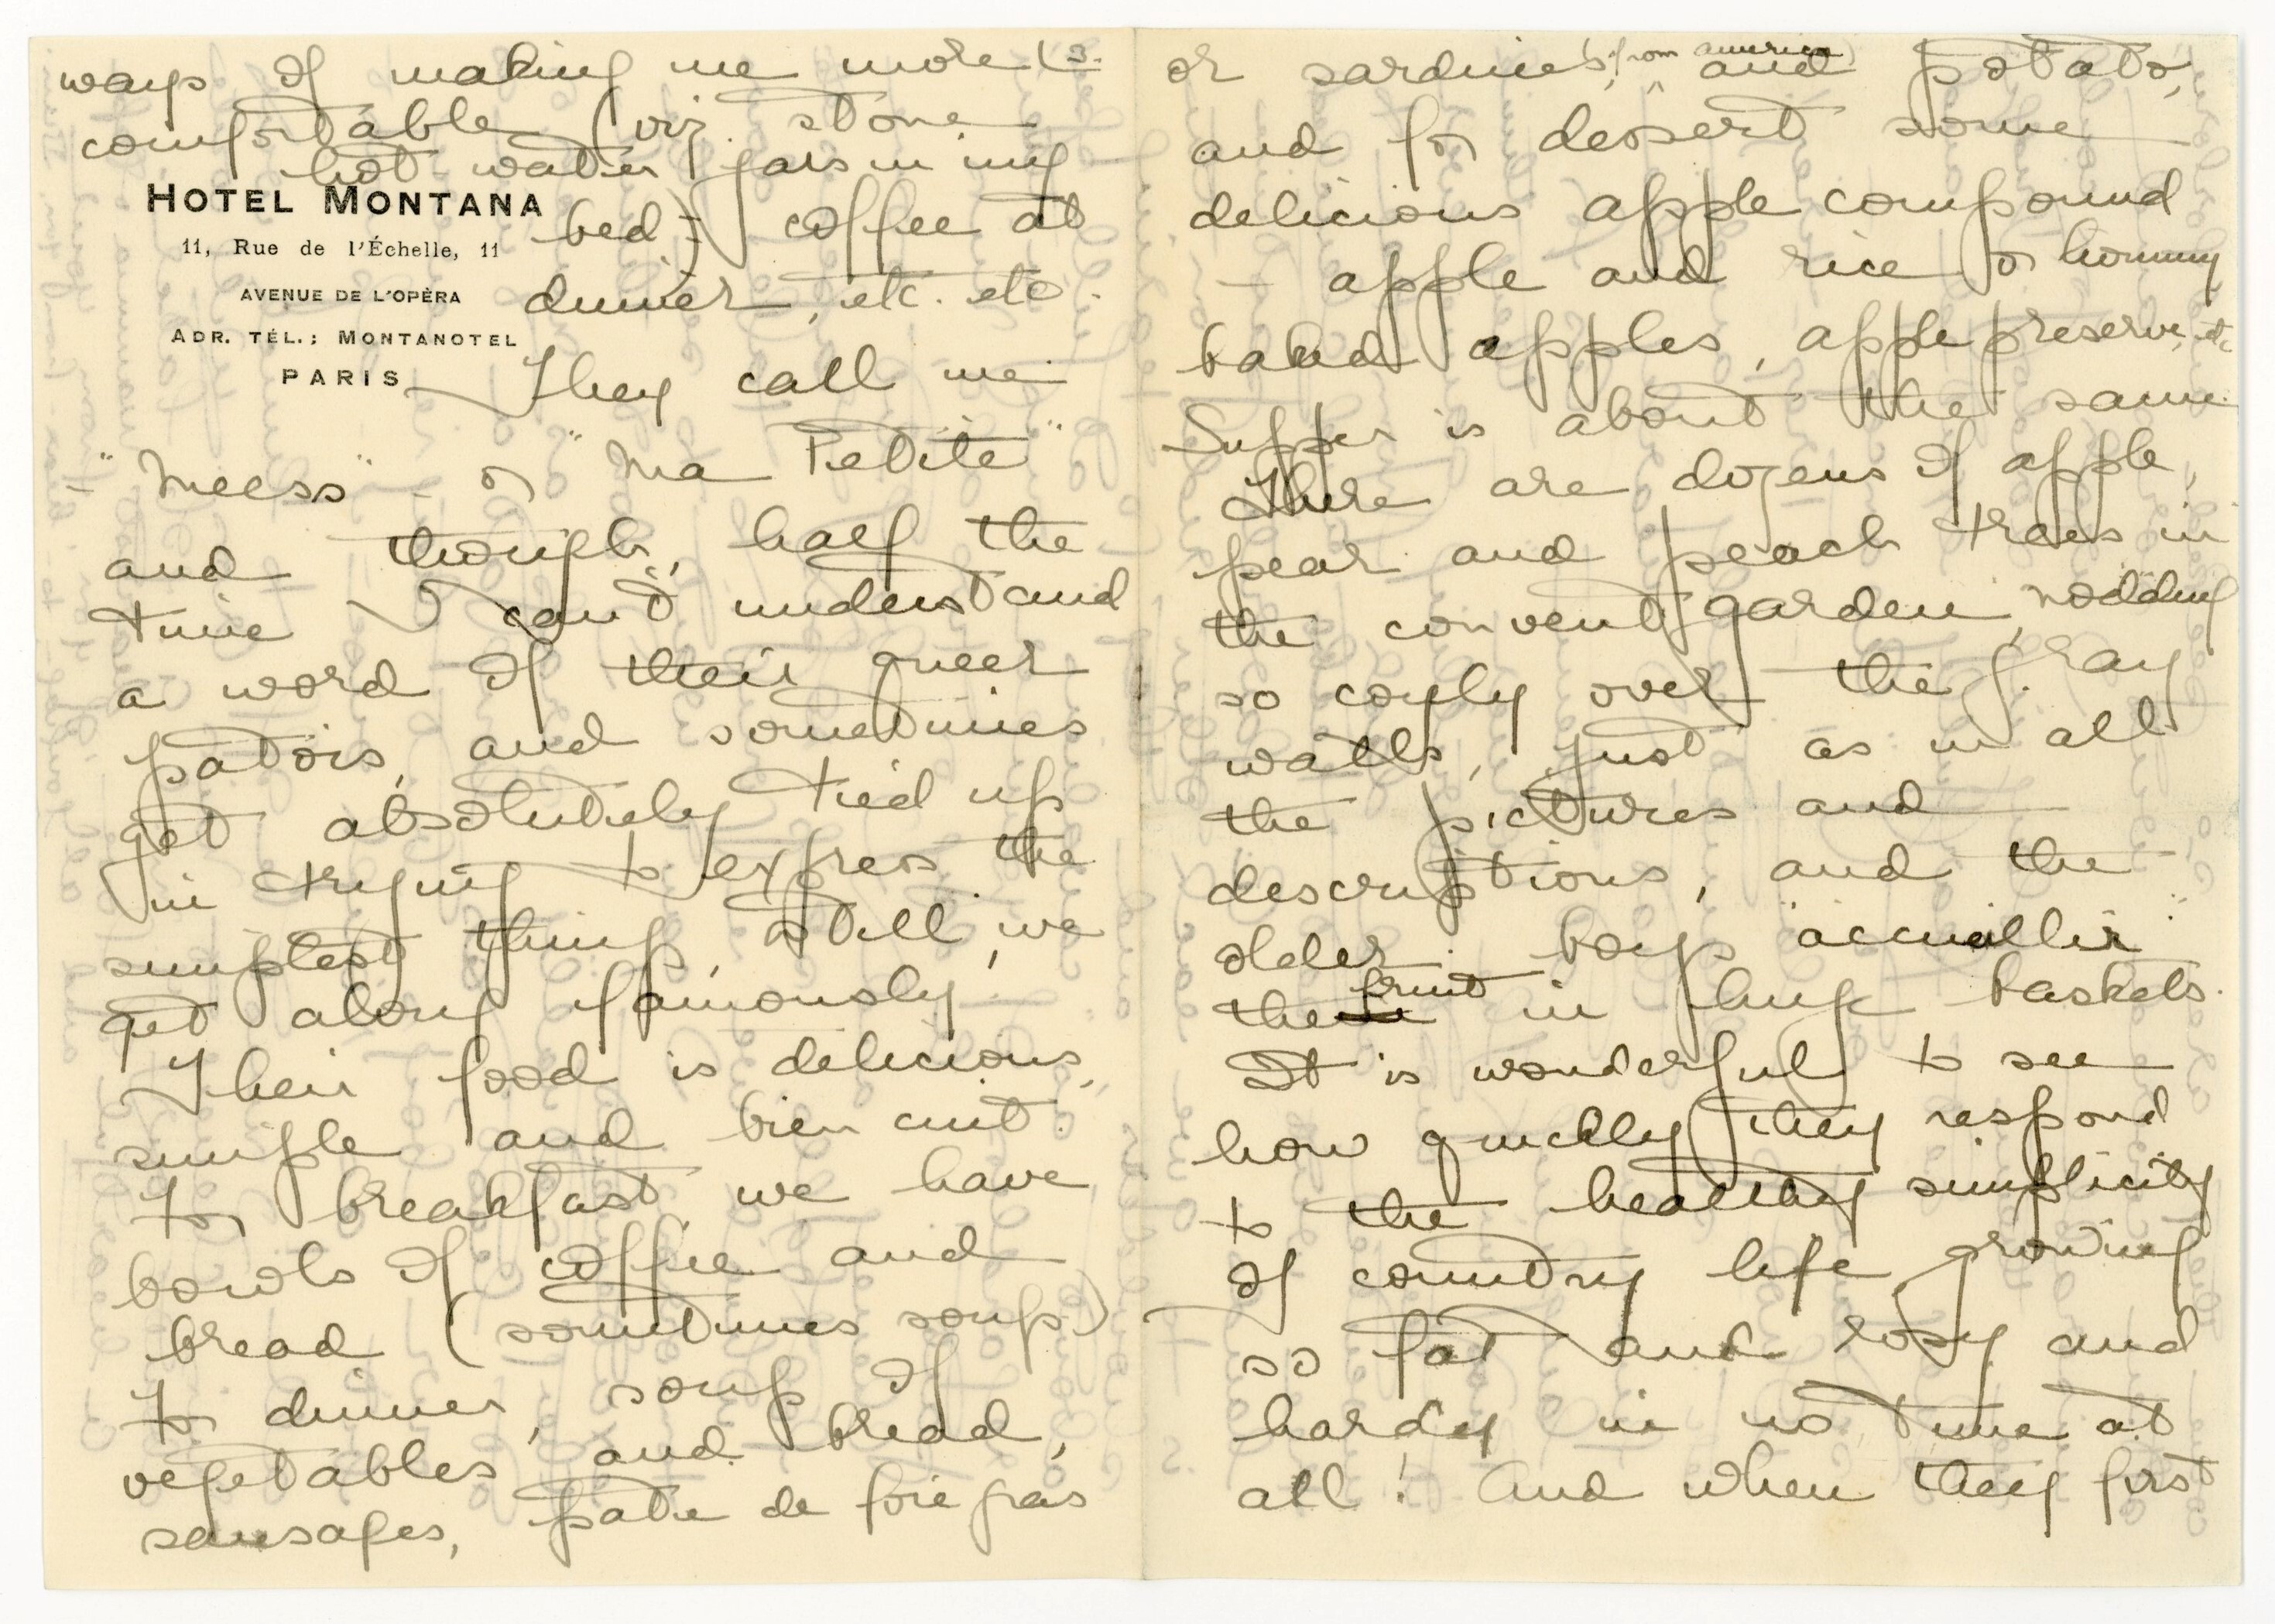 ways of making me more (3.
comfortable (viz. stone
hot water jars in my
HOTEL MONTANA
bed) coffee at
11, Rue de l'Échelle, 11
AVENUE DE L'OPÈRA
dinner, etc. etc.
ADR. TÉL.: MONTANOTEL
PARIS
They call me
- "Meess" - or "Ma Petite"
and though, half the
time I can't understand
a word of their queer
patois, and sometimes
get absolutely tied up
in trying to express the
simplest thing, still, we
get along famously.
Their food is delicious,
simple and bien cuit.
For breakfast we have
bowls of coffee and
bread (sometimes soup)
For dinner, soup of
vegetables and bread,
sausages, paté de foie gras
or sardines, (from america) and potato,
and for dessert some
delicious apple compound
- apple and rice or hominy
baked apples, apple preserve, etc
Supper is about the same.
There are dozens of apple,
pear and peach trees in
the convent garden, nodding
so coyly over the gray
walls, just as in all
the pictures and
descriptions, and the
older boys "accueillir"
the fruit in huge baskets.
It is wonderful to see
how quickly they respond
to the healthy simplicity
of country life, growing
so fat and rosy and
hardy in no time at
all! And when they first